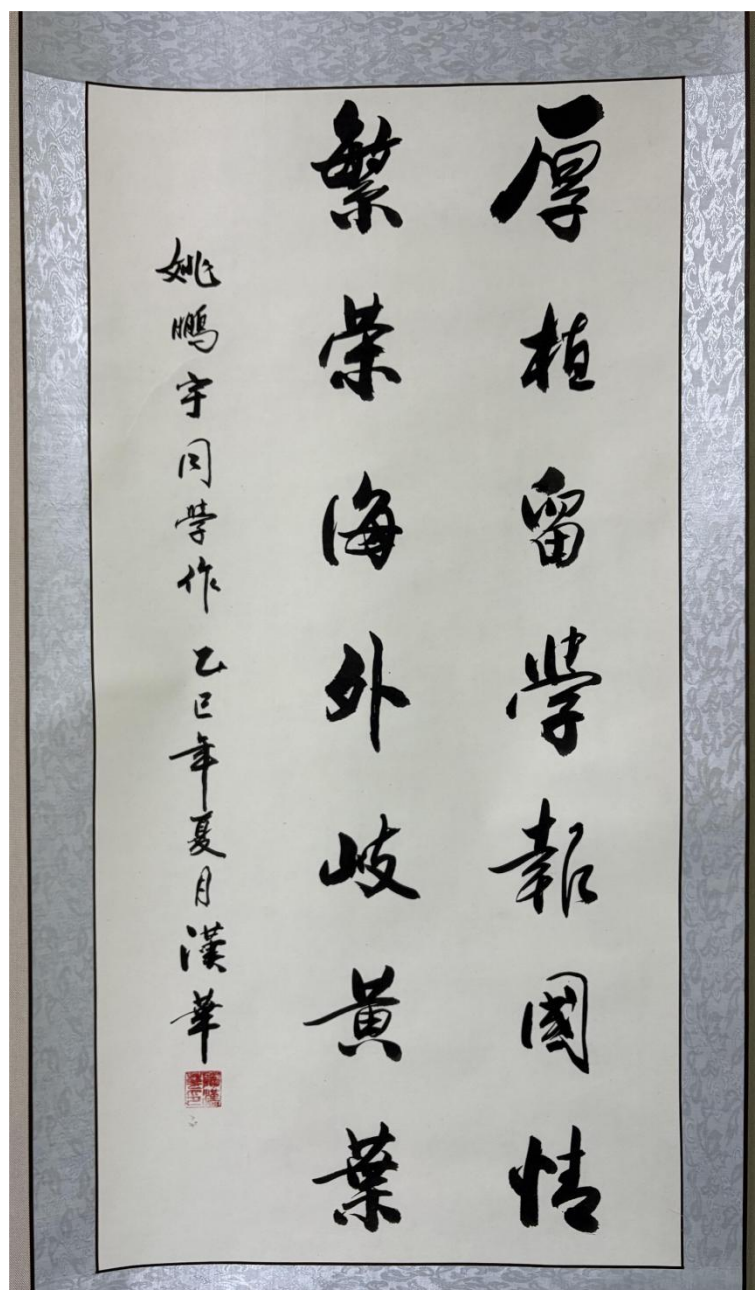 厚植留學報國情
繁荣海外岐黄葉
姚鵬宇同學作 乙巳年夏月漢華